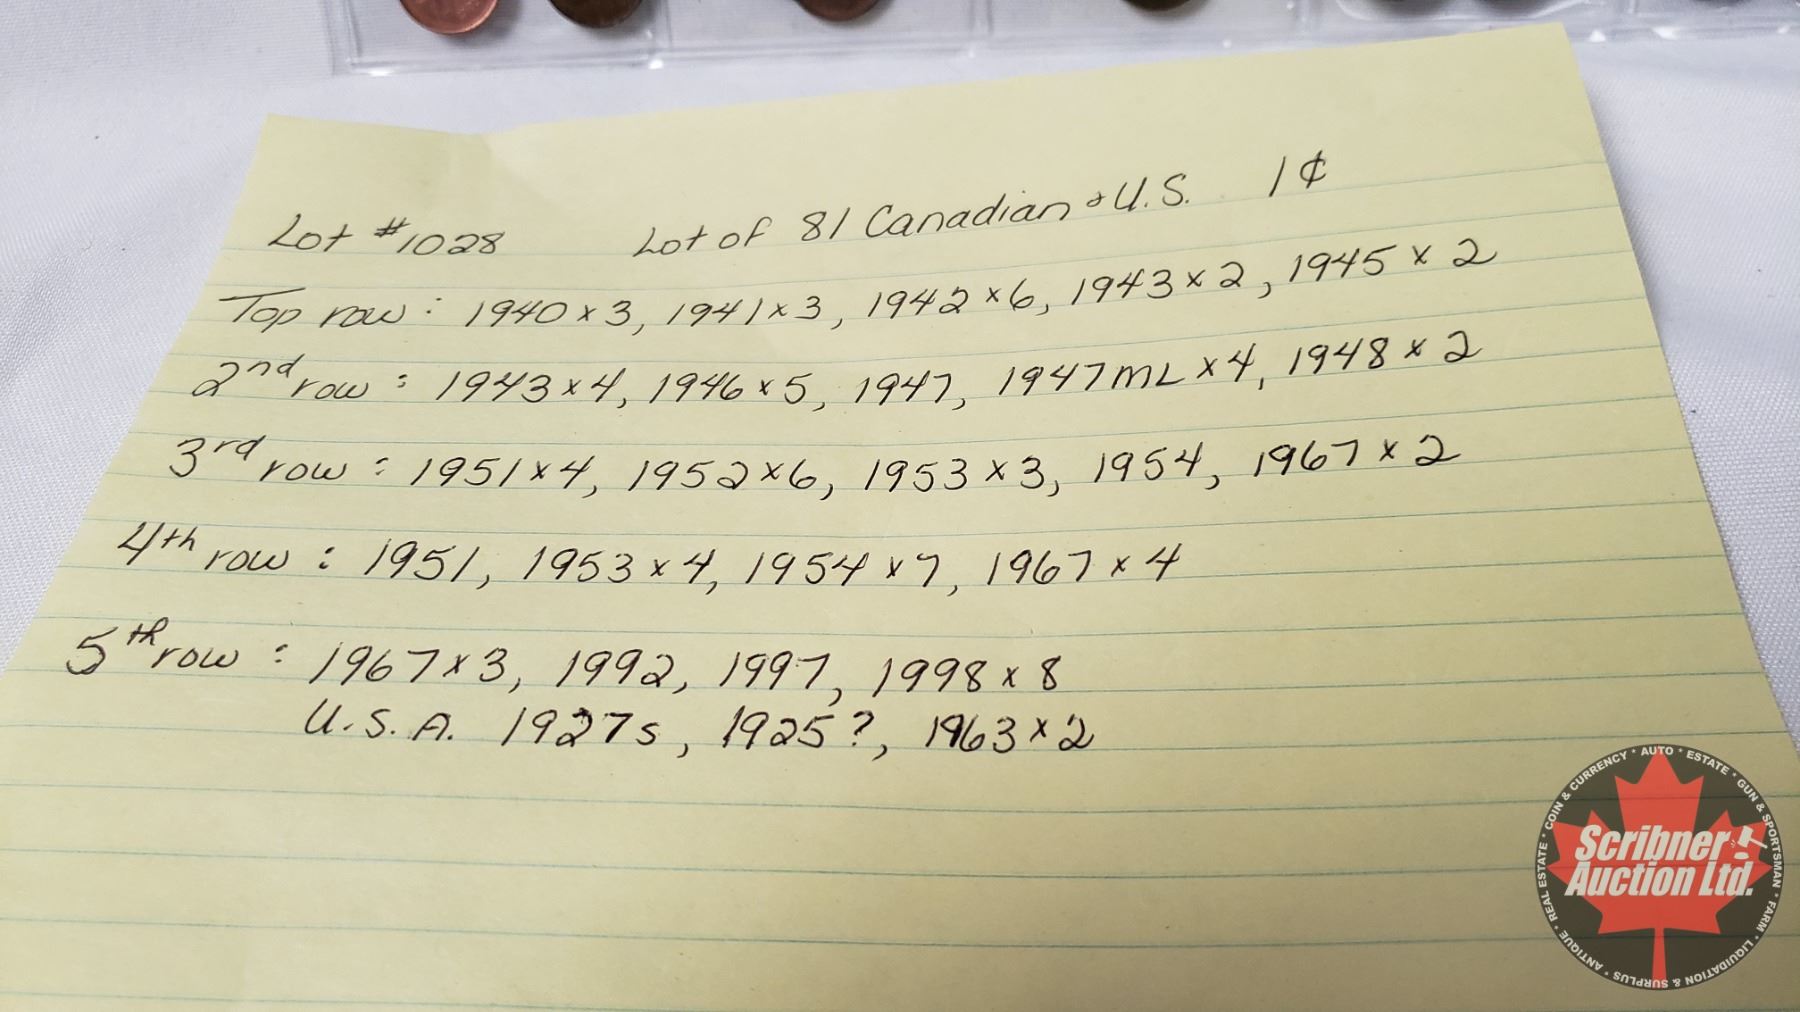 Lot #1028 Lot of 81 Canadian & U.S. 1¢
Top row: 1940 x 3, 1941 x 3, 1942 x 6, 1943 x 2, 1945 x 2
2nd row: 1943 x 4, 1946 x 5, 1947, 1947 ML x 4, 1948 x 2
3rd row: 1951 x 4, 1952 x 6, 1953 x 3, 1954, 1967 x 2
4th row: 1951, 1953 x 4, 1954 x 7, 1967 x 4
5th row: 1967 x 3, 1992, 1997, 1998 x 8
U.S.A. 1927s, 1925?, 1963 x 2
Scribner
Auction Ltd.
ANTIQUE • REAL ESTATE • COIN & CURRENCY • AUTO • ESTATE • GUN & SPORTSMAN • FARM • LIQUIDATION & SURPLUS •